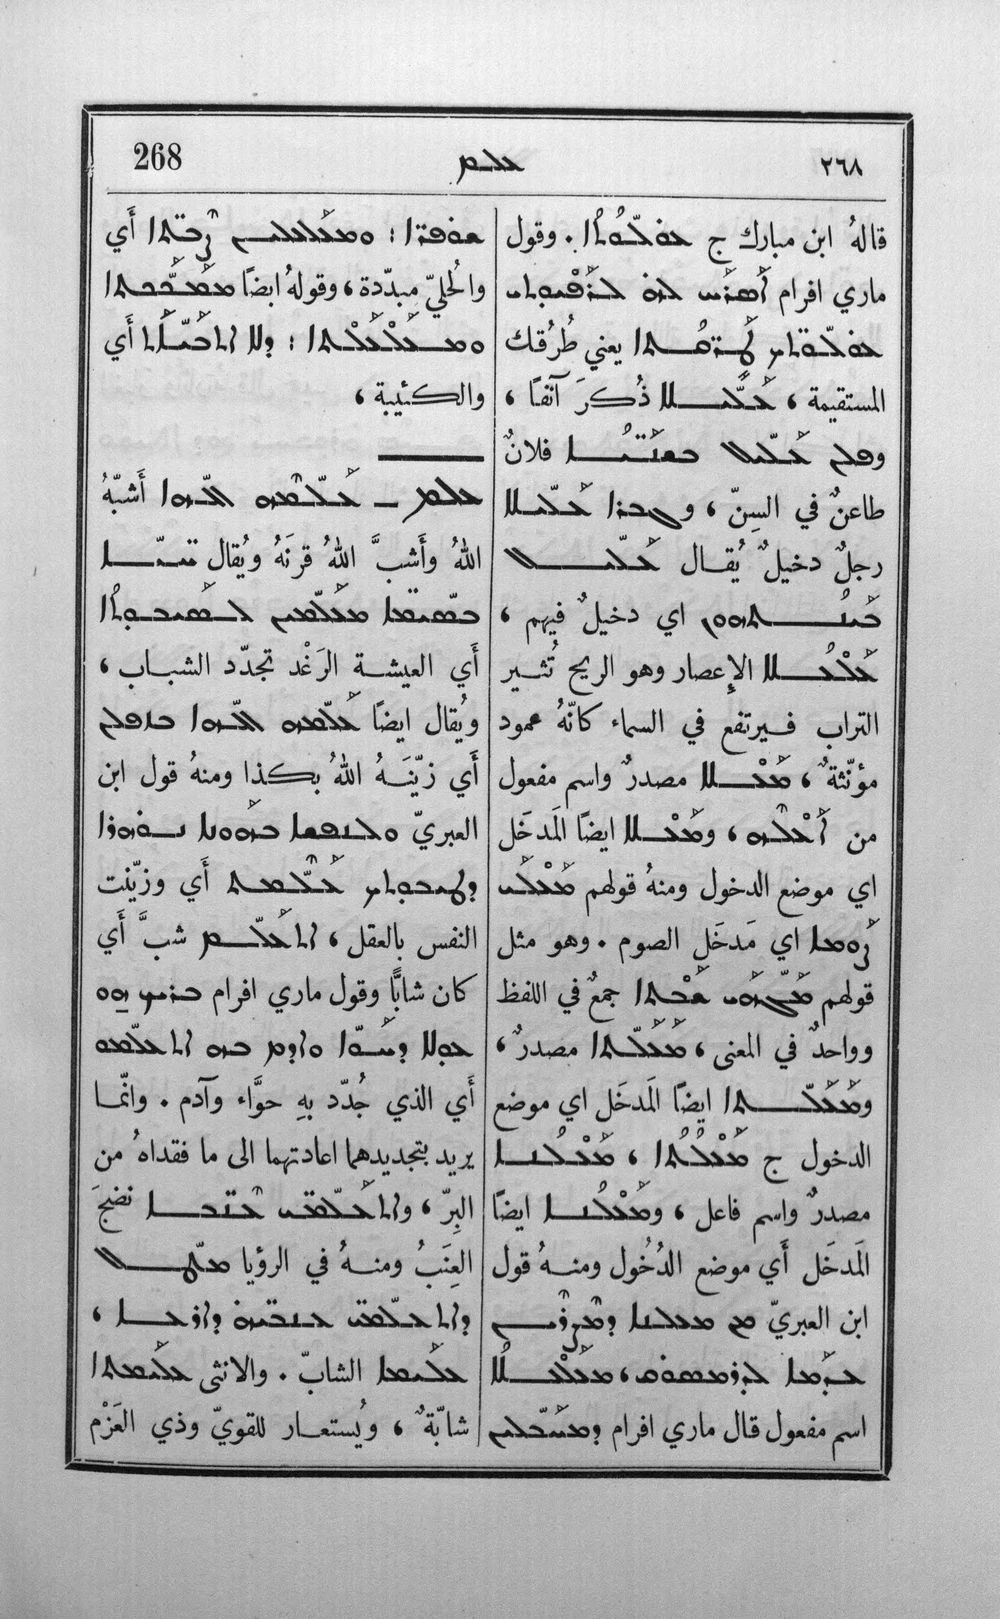 ٢٦٨ ܥܠܡ 268
قالهُ ابن مبارك ج ܥܘܠܘܬܐ . وقول
ماري افرام
يعني طُرُقك
المستقيمة ، ذُكرَ آنفًا ،
ܘܦܠܢ ܥܠܝܠ ܒܫܢܝܐ فلانٌ
طاعنٌ في السِنّ ، ܘܓܒܪܐ ܥܠܝܠܐ
رجلٌ دخيلٌ يُقال ܥܠܝܠ
ܒܝܢܬܗܘܢ اي دخيلٌ فيهم ،
ܥܠܥܠܐ الإعصار وهو الريح تُثير
التراب فيرتفع في السماء كانّهُ عمود
مؤنّثةٌ ، ܡܥܠܐ مصدرٌ واسم مفعول
من ܐܥܠܗ ، ܘܡܥܠܐ ايضًا المَدخَل
اي موضع الدخول ومنهُ قولهم ܡܥܠܝ
ܨܘܡܐ اي مَدخَل الصوم . وهو مثل
قولهم ܡܓܗܝ ܫܒܬܐ جمعٌ في اللفظ
وواحدٌ في المعنى ، ܡܥܠܬܐ مصدرٌ ،
ܘܡܥܠܬܐ ايضًا المَدخَل اي موضع
الدخول ج ܡܥܠܬܐ ، ܡܥܠܢܐ
مصدرٌ واسم فاعل ، ܘܡܥܠܢܐ ايضًا
المَدخَل أَي موضع الدُخُول ومنهُ قول
ابن العبريّ ܡܢ ܡܥܠܢܐ ܕܡܨܪܝܢ
ܥܕܡܐ ܠܕܪܡܣܘܩ ، ܡܥܠܥܠܐ
اسم مفعول قال ماري افرام ܕܡܚܒܠܝܢ
ܫܘܦܪܐ : ܘܡܥܠܥܠܝܢ ܨܒܬܐ أَي
والحُليّ مبدّدة ، وقولهُ ايضًا
ܘܡܥܠܥܠܬܐ : ܕܠܐ أَي
والكئيبة ،
ܥܠܡ ــ ܥܠܡܗ ܐܠܗܐ أَشبّهُ
اللهُ وأَشبَّ اللهُ قرنَهُ ويُقال ܚܝܐ
ܒܣܝܡܐ ܡܥܠܡܝܢ ܠܣܝܒܘܬܐ
أَي العيشة الرَغْد تجدّد الشباب ،
ويُقال ايضًا ܥܠܡܗ ܐܠܗܐ ܒܦܠܢ
أَي زيّنَهُ اللهُ بكذا ومنهُ قول ابن
العبريّ ܘܠܢܦܫܐ ܒܗܘܢܐ ܢܗܘܪܐ
ܕܛܝܒܘܬܟ ܥܠܡܬ أَي وزيّنت
النفس بالعقل ، ܐܬܥܠܡ شبَّ أَي
كان شابًّا وقول ماري افرام ܒܪܝܟ ܗܘ
ܥܘܠܐ ܕܚܘܐ ܘܐܕܡ ܒܗ ܐܬܥܠܡܘ
أَي الذي جُدّد بهِ حوَّاء وآدم . وانّما
يريد بتجديدهما اعادتهما الى ما فقداهُ من
البِرّ ، ܘܐܬܥܠܡܘ ܥܢܒܐ نضجَ
العِنَبُ ومنهُ في الرؤيا ܡܛܠ
ܕܐܬܥܠܡܝ ܥܢܒܝܗ ܕܐܪܥܐ ،
ܥܠܝܡܐ الشابّ . والانثى ܥܠܝܡܬܐ
شابّةٌ ، ويُستعار للقويّ وذي العَزْم